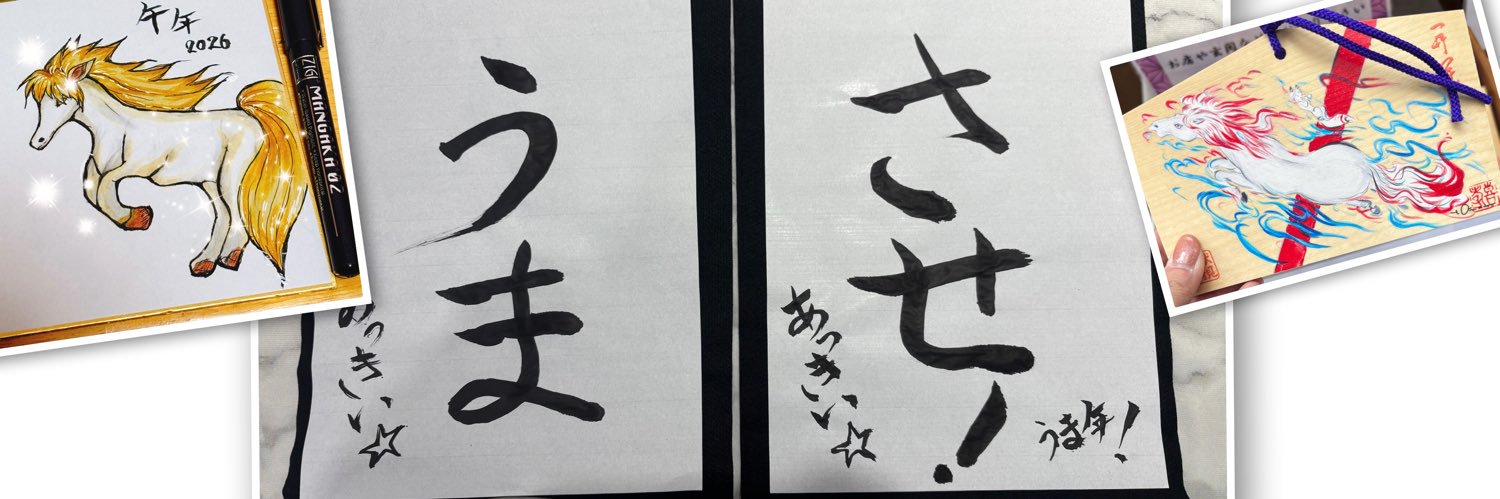 午年
2026
ZIG
MANGAKA 02
うま
あっきぃ☆
させ!
あっきぃ☆
うま年!
お店や玄関な
さい